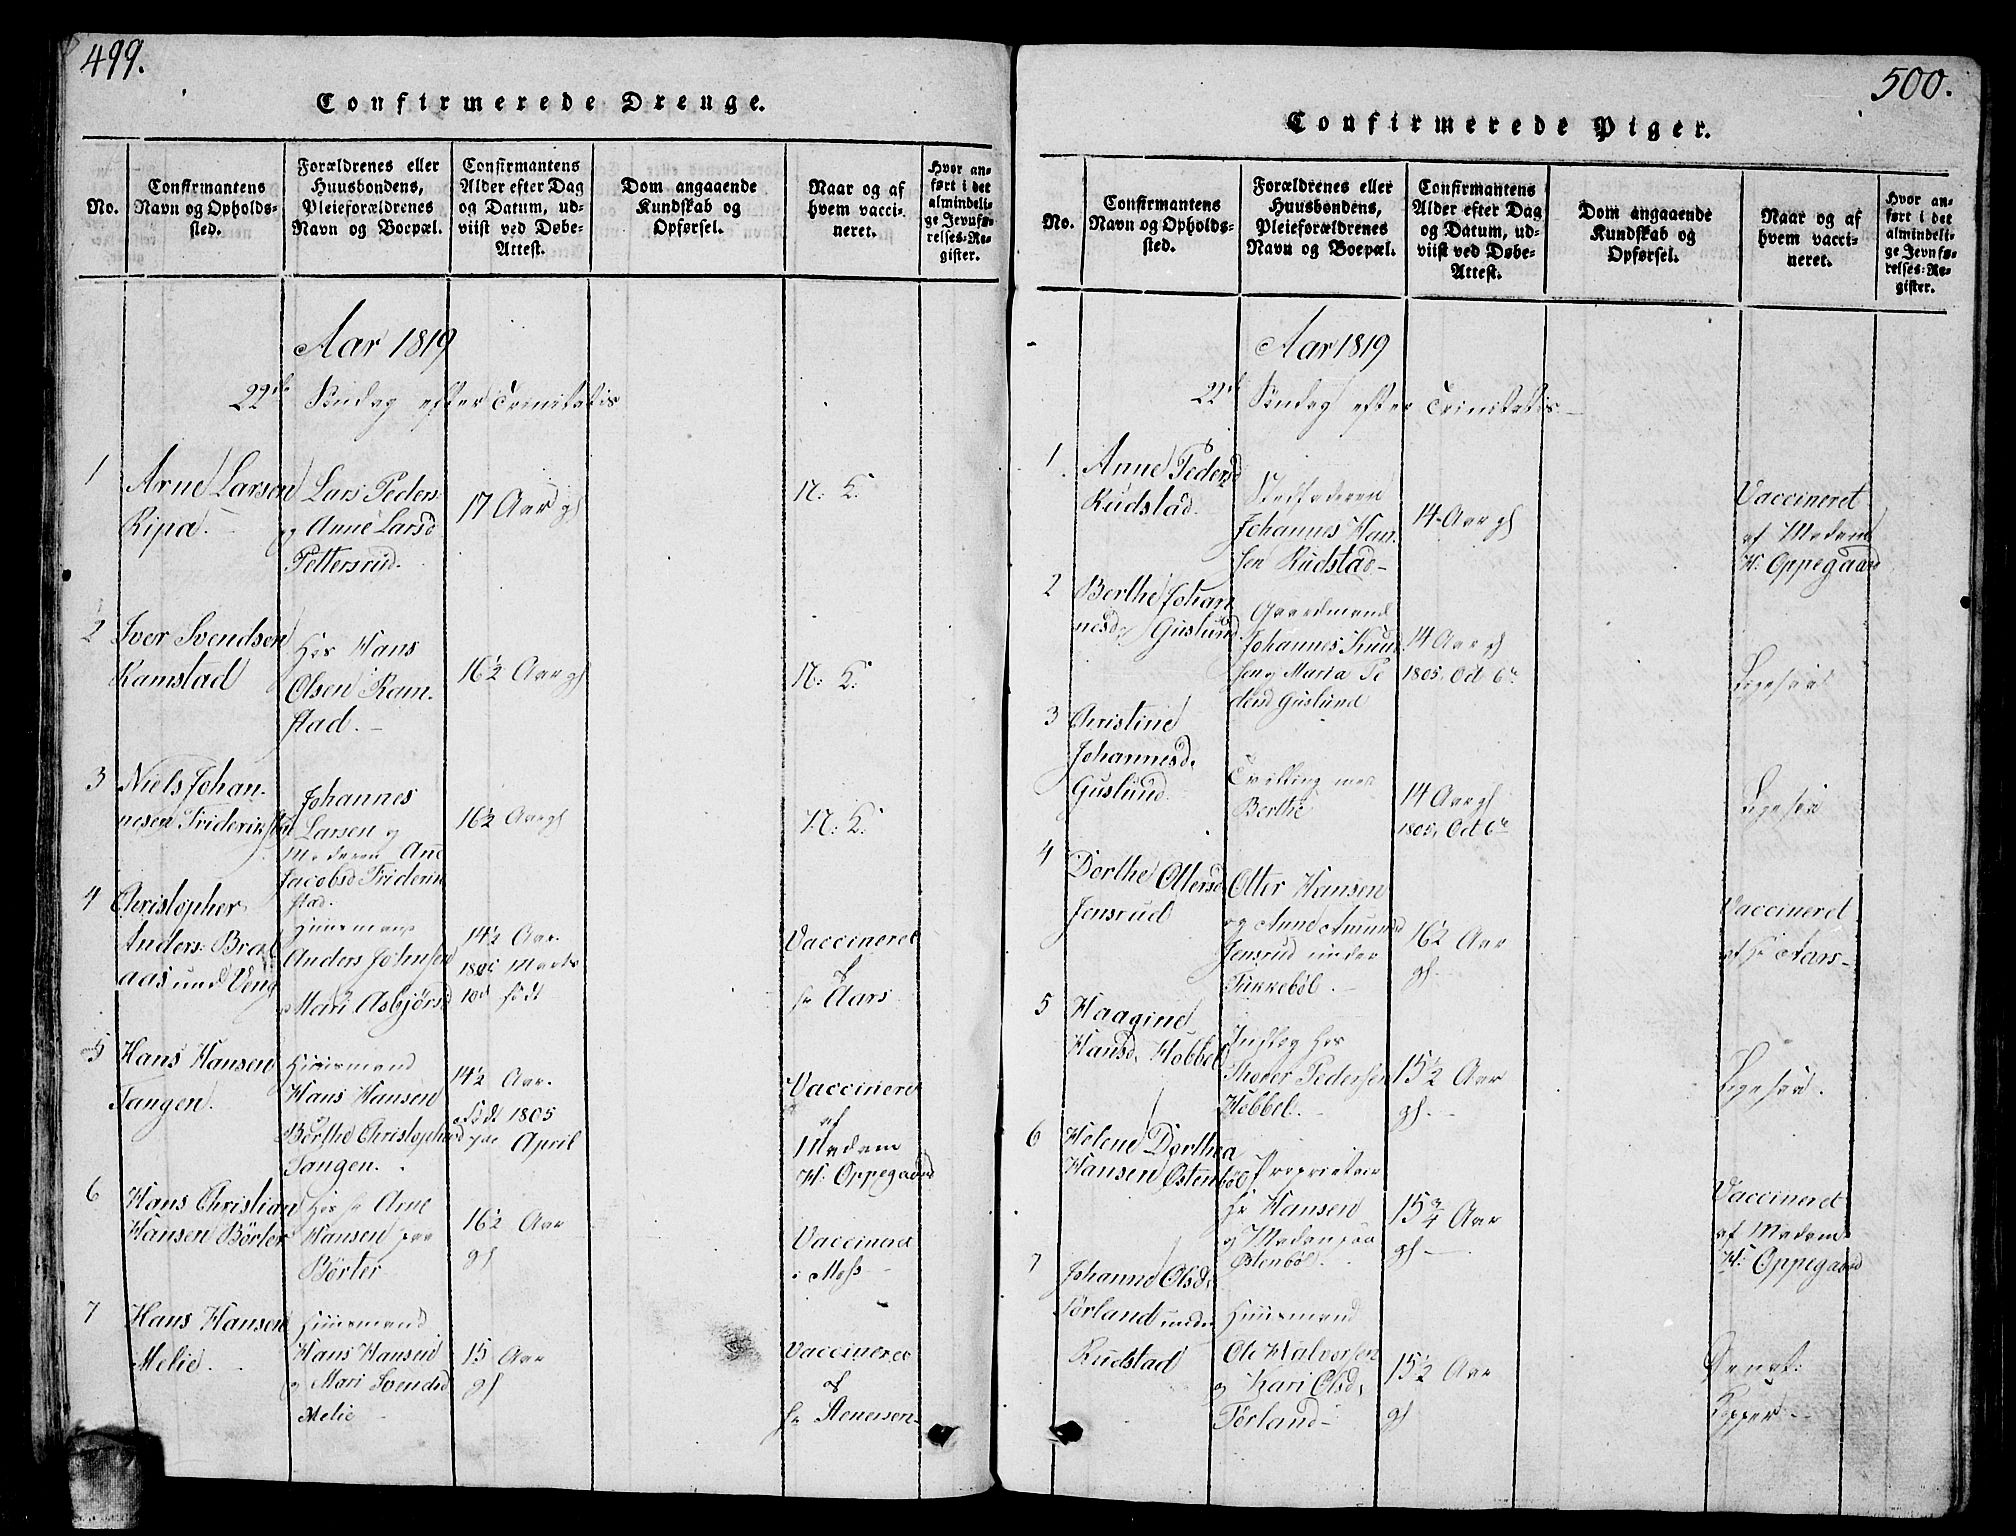 499.
Confirmerede Drenge.
No.
Confirmantens
Navn og Opholds-
sted.
Forældrenes eller
Huusbondens,
Pleieforældrenes
Navn og Boepæl.
Confirmantens
Alder efter Dag
og Datum, ud-
viist ved Døbe-
Attest.
Dom angaaende
Kundskab og
Opførsel.
Naar og af
hvem vacci-
neret.
Hvor an-
ført i det
almindeli-
ge Jevnfø-
relses-Re-
gister.
Aar 1819
22de Søndag efter Trinitatis
1
Arne Larsen
Ripa.
Lars Peders.
og Anne Larsd
Pettersrud.
17 Aar gl
N: K.
2
Iver Svendsen
Ramstad
Hos Hans
Olsen Ram-
stad.
16½ Aar gl
N: K.
3
Niels Johan-
nesen Triderikstad
Johannes
Larsen og
Moderen Ane
Jacobsd Triderik
stad.
16½ Aar gl
N: K.
4
Christopher
Anders: Braa
aas und Veng
Huusmand
Anders Johnsen
Mari Asbjørsd
14½ Aar.
Marts
født
Vaccineret
af
Hr Aars
5
Hans Hansen
Tangen.
Huusmand
Hans Hansen
Børthe Christophersd
Tangen.
14½ Aar.
født 1805
7de April
Vaccineret
af
Madam
H: Oppegaard
6
Hans Christian
Hansen Børter
Hos Hr Arne
Hansen paa
Børter
16½ Aar
gl
Vaccineret
i Moss
7
Hans Hansen
Melie.
Huusmand
Hans Hansen
og Mari Svendsd
Melie
15 Aar
gl
Vaccineret
af
Hr Stenersen
500.
Confirmerede Piger.
No.
Confirmantens
Navn og Opholds-
sted.
Forældrenes eller
Huusbondens,
Pleieforældrenes
Navn og Boepæl.
Confirmantens
Alder efter Dag
og Datum, ud-
viist ved Døbe-
Attest.
Dom angaaende
Kundskab og
Opførsel.
Naar og af
hvem vacci-
neret.
Hvor an-
ført i det
almindeli-
ge Jevnfø-
relses-Re-
gister.
Aar 1819
22de Søndag efter Trinitatis
1
Anne Pedersd
Rudstad.
Stedfaderen
Johannes Han-
sen Rudstad
14 Aar gl
Vaccineret
af Madam
H: Oppegaard
2
Berthe Johan
nesd. Guslund
Gaardmand
Johannes Knud
sen og Maria Pe
dersd Guslund
14 Aar gl
1805, Oct 6te
Ligesaa
3
Christine
Johannesd.
Guslund.
Tvilling med
Berthe
14 Aar gl
1805, Oct 6te
Ligesaa
4
Dorthe Ottersd
Jensrud
Otter Hansen
og Anne Amunds
Jensrud under
Tikkebøl.
16½ Aar
gl.
Vaccineret
af Hr Aars
5
Haagine
Hansd. Hobbel
Hos
Thorer Pedersen
Hobbel.
15½ Aar
gl.
Ligesaa.
6
Helene Dorthea
Hansen Østenbøl
Proprietair
Hr Hansen
og Madam paa
Østenbøl.
15¾ Aar
gl.
Vaccineret
af Madam
H: Oppegaard
7
Johanne Olsd.
Torland under
Rudstad
Huusmand
Ole Halvorsen
og Kari Olsd.
Torland
15½ Aar
gl
Kopper